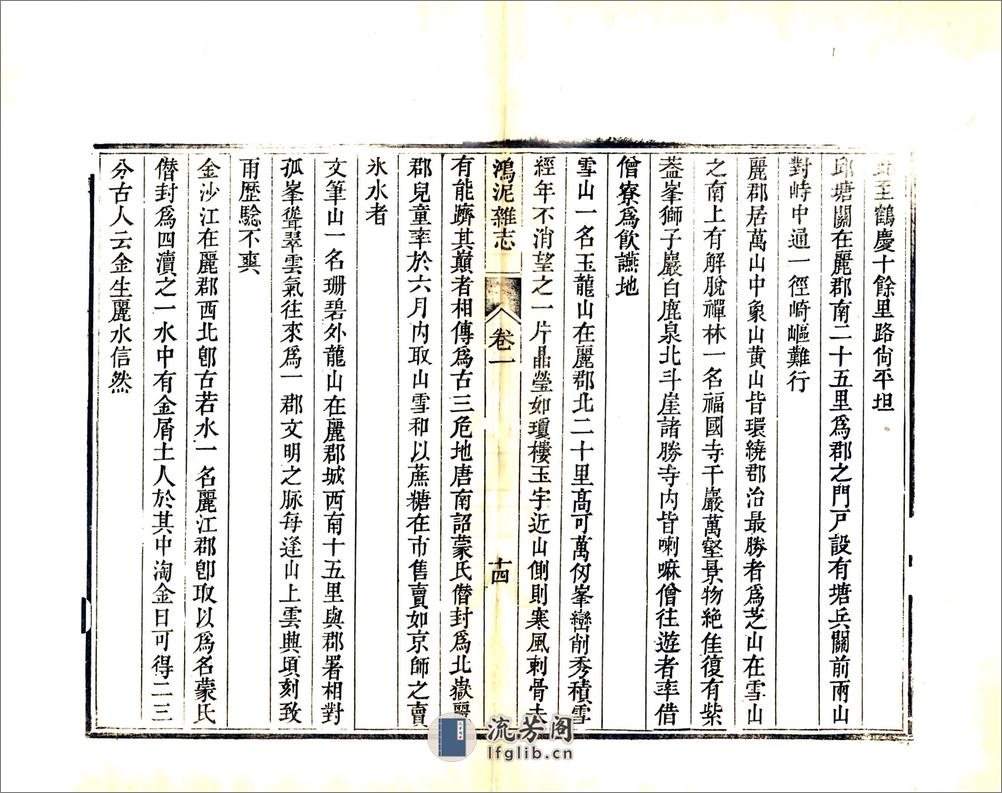 至鶴慶十餘里路尙平坦
邱塘關在麗郡南二十五里爲郡之門戸設有塘兵關前兩山
對峙中通一徑崎嶇難行
麗郡居萬山中象山黄山皆環繞郡治最勝者爲芝山在雪山
之南上有解脫禪林一名福國寺千巖萬壑景物絶佳復有紫
葢峯獅子巖白鹿泉北斗崖諸勝寺内皆喇嘛僧往遊者率借
僧寮爲飲讌地
雪山一名玉龍山在麗郡北二十里髙可萬仞峯巒削秀積雪
經年不消望之一片晶瑩如瓊樓玉宇近山側則寒風刺骨未
鴻泥雜志
卷一
十四
有能躋其巔者相傳爲古三危地唐南詔蒙氏僭封爲北嶽麗
郡兒童率於六月内取山雪和以蔗糖在市售賣如京師之賣
氷水者
文筆山一名珊碧外龍山在麗郡城西南十五里與郡署相對
孤峯聳翠雲氣往來爲一郡文明之脉每逢山上雲興頃刻致
雨歴騐不爽
金沙江在麗郡西北卽古若水一名麗江郡卽取以爲名蒙氏
僭封爲四瀆之一水中有金屑土人於其中淘金日可得二三
分古人云金生麗水信然
流芳阁
lfglib.cn